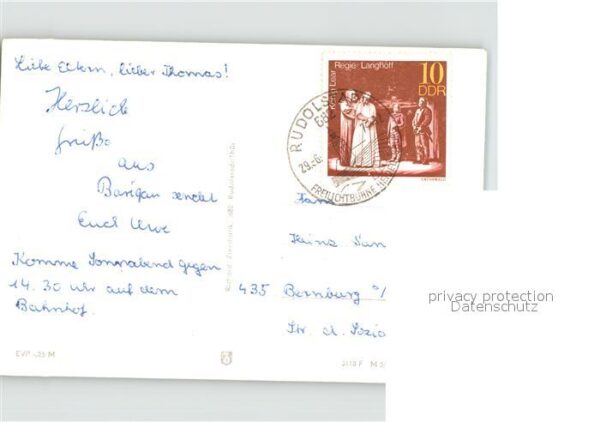 Liebe Eltern, lieber Thomas!
Herzliche
Grüße
aus
sendet
Euch Uwe
Komme Sonnabend gegen
14.30 Uhr auf dem
Bahnhof.
EVP -,25 M
König Lear
Regie: Langhoff
10
DDR
RUDOLST
29.-6.
FREILICHTBÜHNE
Fam
Heinz
435 Bernburg
Str. d.
privacy protection
Datenschutz